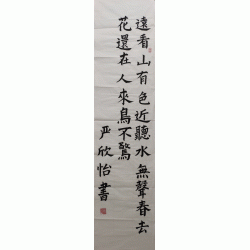 遠看山有色近聽水無聲春去
花還在人來鳥不驚
严欣怡書